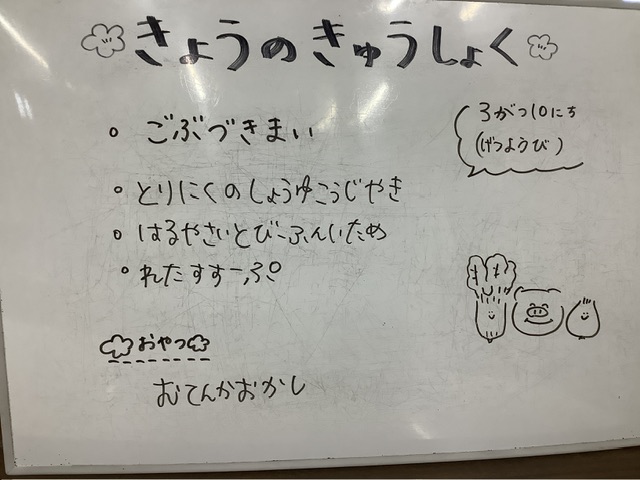 きょうのきゅうしょく
3がつ10にち
(げつようび)
。ごぶづきまい
。とりにくのしょうゆこうじやき
。はるやさいとびーふんいため
。れたすすーぷ
おやつ
むてんかおかし